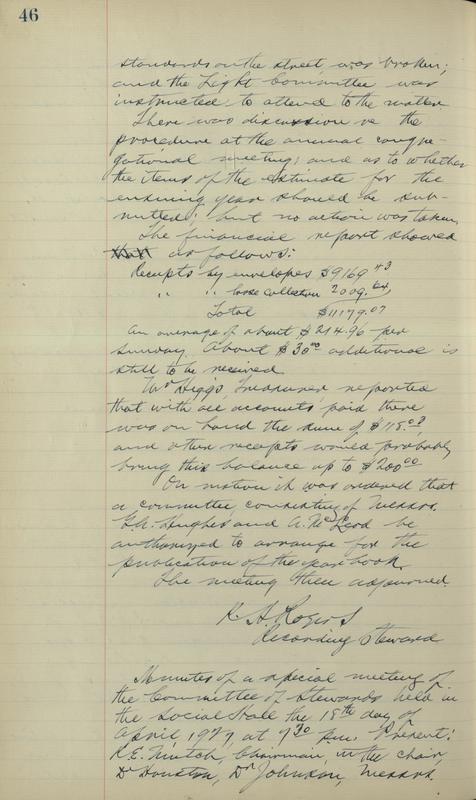 46
standards on the street was broken;
and the Light Committee was
instructed to attend to the matter
There was discussion re the
procedure at the annual congre-
gational meeting; and as to whether
the items of the estimate for the
ensuing year should be sub-
mitted; but no action was taken.
The financial report showed
as follows:
Receipts by envelopes $9169.43
" " loose collection 2009.64
Total $11179.07
An average of about $214.96 per
Sunday. About $30.00 additional is
still to be received.
Mr Higgs, Treasurer, reported
that with all accounts paid there
was on hand the sum of $118.
and other receipts would probably
bring this balance up to $200.00
On motion it was ordered that
a committee consisting of Messrs.
Hughes and A. McLeod be
authorized to arrange for the
publication of the year book.
The meeting then adjourned
Rogers
Recording Steward
Minutes of a special meeting of
the Committee of Stewards held in
the Social Hall the 18th day of
April, 1927, at 7.30 p.m. Present:
R.E. Mutch, Chairman, in the chair,
Dr Houston, Dr Johnson, Messrs.